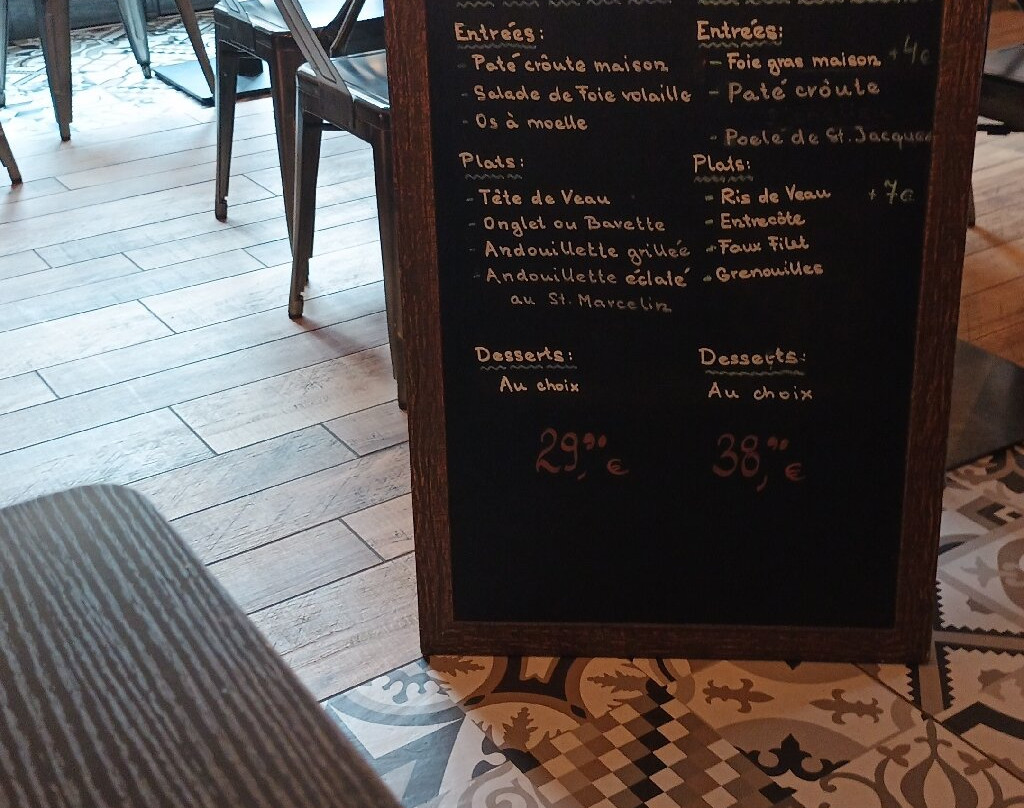 Entrées:
- Paté crôute maison
- Salade de Foie volaille
- Os à moelle
Plats:
- Tête de Veau
- Onglet ou Bavette
- Andouillette grillée
- Andouillette éclaté
au St. Marcelin
Desserts:
Au choix
29,90 €
Entrées:
- Foie gras maison +4€
- Paté crôute
- Poelé de St. Jacques
Plats:
- Ris de Veau +7€
- Entrecôte
- Faux Filet
- Grenouilles
Desserts:
Au choix
38,90 €